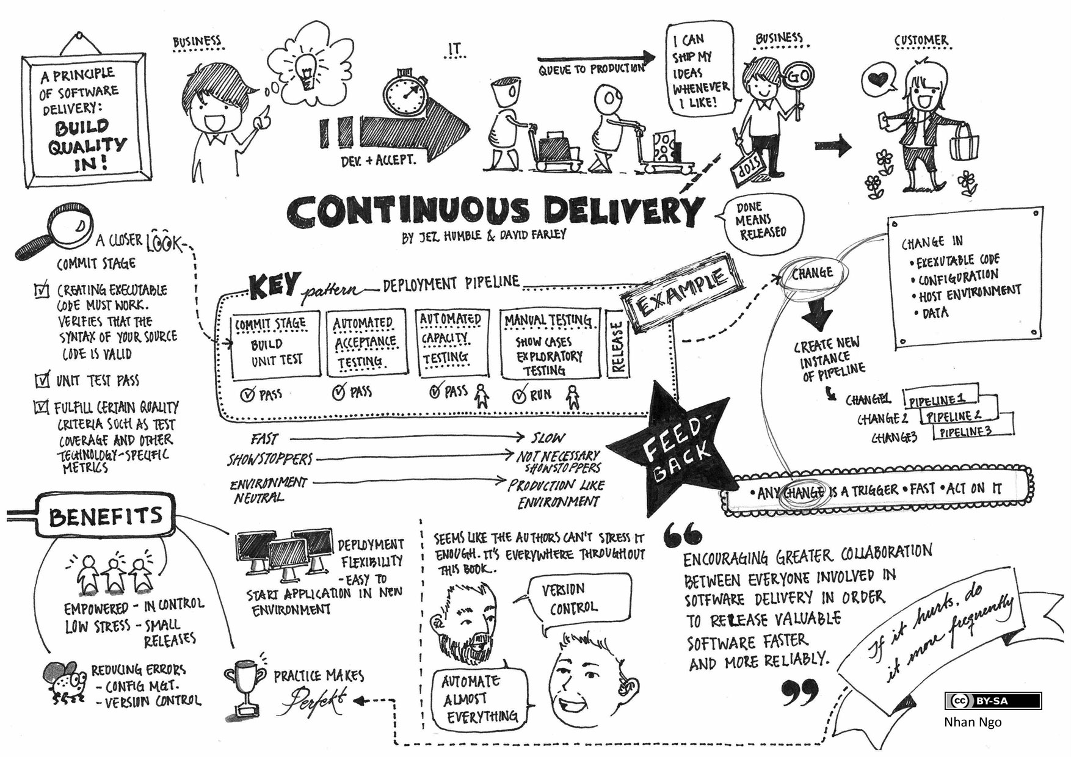 A PRINCIPLE
OF SOFTWARE
DELIVERY:
BUILD
QUALITY
IN!
BUSINESS
DEV. + ACCEPT.
IT
QUEUE TO PRODUCTION
I CAN
SHIP MY
IDEAS
WHENEVER
I LIKE!
BUSINESS
GO
STOP
CUSTOMER
CONTINUOUS DELIVERY
BY JEZ HUMBLE & DAVID FARLEY
DONE
MEANS
RELEASED
A CLOSER LOOK
COMMIT STAGE
CREATING EXECUTABLE
CODE MUST WORK.
VERIFIES THAT THE
SYNTAX OF YOUR SOURCE
CODE IS VALID
UNIT TEST PASS
FULFILL CERTAIN QUALITY
CRITERIA SUCH AS TEST
COVERAGE AND OTHER
TECHNOLOGY-SPECIFIC
METRICS
KEY pattern DEPLOYMENT PIPELINE
EXAMPLE
COMMIT STAGE
BUILD
UNIT TEST
PASS
AUTOMATED
ACCEPTANCE
TESTING
PASS
AUTOMATED
CAPACITY
TESTING
PASS
MANUAL TESTING
SHOW CASES
EXPLORATORY
TESTING
RUN
RELEASE
FAST
SLOW
SHOWSTOPPERS
NOT NECESSARY
SHOWSTOPPERS
ENVIRONMENT
NEUTRAL
PRODUCTION LIKE
ENVIRONMENT
FEED-
BACK
CHANGE
CHANGE IN
• EXEXUTABLE CODE
• CONFIGURATION
• HOST ENVIRONMENT
• DATA
CREATE NEW
INSTANCE
OF PIPELINE
CHANGE1 PIPELINE1
CHANGE2 PIPELINE2
CHANGE3 PIPELINE3
• ANY CHANGE IS A TRIGGER • FAST • ACT ON IT
BENEFITS
EMPOWERED - IN CONTROL
LOW STRESS - SMALL
RELEASES
REDUCING ERRORS
- CONFIG MGT.
- VERSION CONTROL
DEPLOYMENT
FLEXIBILITY
- EASY TO
START APPLICATION IN NEW
ENVIRONMENT
PRACTICE MAKES
Perfekt
SEEMS LIKE THE AUTHORS CAN'T STRESS IT
ENOUGH. IT'S EVERYWHERE THROUGHOUT
THIS BOOK..
VERSION
CONTROL
AUTOMATE
ALMOST
EVERYTHING
“
ENCOURAGING GREATER COLLABORATION
BETWEEN EVERYONE INVOLVED IN
SOFTWARE DELIVERY IN ORDER
TO RELEASE VALUABLE
SOFTWARE FASTER
AND MORE RELIABLY.
”
If it hurts, do
it more frequently
cc BY-SA
Nhan Ngo